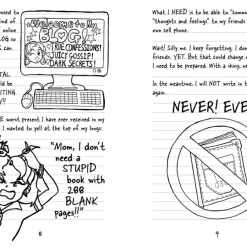 used to
Welcome to My
BLOG
TRUE CONFESSIONS!
JUICY GOSSIP!
DARK SECRETS!
of
online
LOG so
can
TAL
ould be
WRITING
ty!!
worst present I have ever received in my
I wanted to yell at the top of my lungs:
"Mom, I don't
need a
STUPID
book with
200
BLANK
pages!!"
8
What I NEED is to be able to "commu
"thoughts and feelings" to my friends
own cell phone.
Wait! Silly me. I keep forgetting, I don
friends. YET. But that could change
I need to be prepared. With a shiny, ne
In the meantime, I will NOT write in t
again.
NEVER! EVE
9